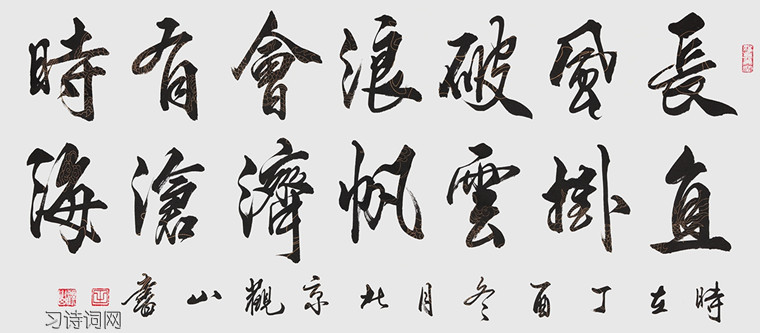 長風破浪會有時
直掛雲帆濟滄海
時在丁酉冬月北京觀山書
习诗词网